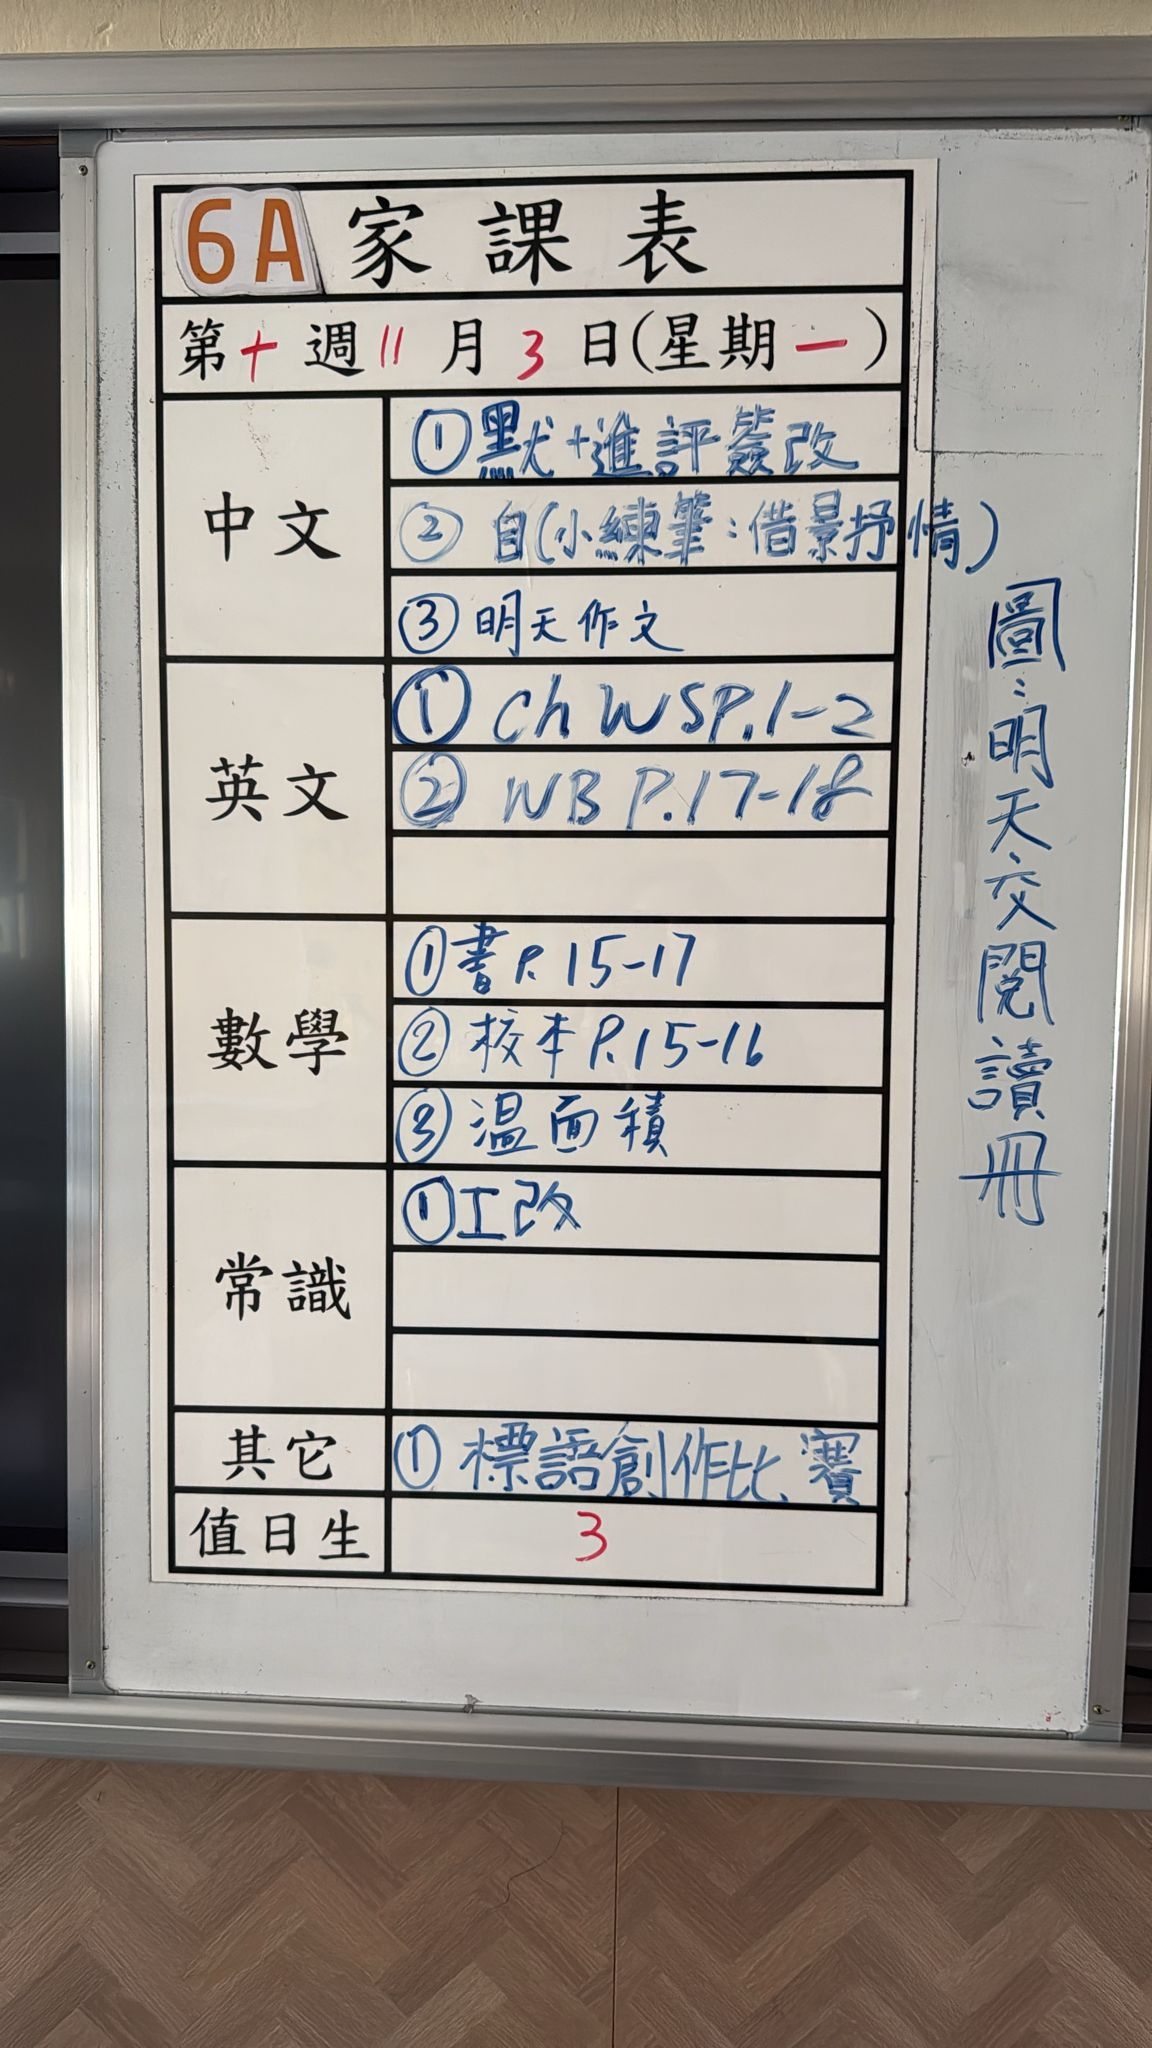 6A 家課表
第十週11月3日(星期一)
中文
①默+進評簽改
② 自(小練筆：借景抒情)
③ 明天作文
英文
① Ch WS P.1-2
② WB P.17-18
數學
①書P.15-17
②校本P.15-16
③溫面積
常識
①工改
其它
① 標語創作比賽
值日生
3
圖：明天交閱讀冊